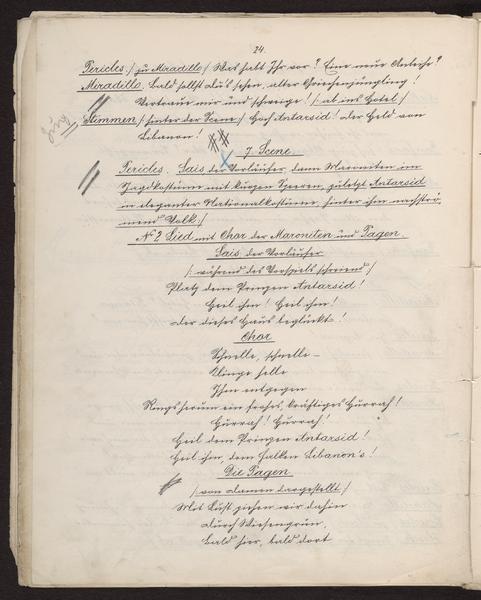 24.
Pericles /: zu Miradillo :/ Was habt Ihr vor? Eine neue Anleihe?
Miradillo. Bald sollst du's sehen, alter Griechenjüngling!
Vertraue mir und schweige! /: ab ins Hotel :/
Stimmen /: hinter der Scene :/ Hoch Antarsid! der Held von
Libanon!
7. Scene.
Pericles. Sais der Vorläufer, dann Maroniten im
Jagdkostüme mit kurzen Speeren, zuletzt Antarsid
in eleganter Nationalkostüme, hinter ihm nachströ-
mend Volk :/
No 2 Lied mit Chor der Maroniten und Pagen.
Sais der Vorläufer
/: während des Vorspiels schreiend :/
Platz dem Prinzen Antarsid!
Heil ihm! Heil ihm!
der dieses Haus beglückt!
Chor
Schnelle, schnelle –
Klinge helle
Ihm entgegen
Ringsherum ein frohes, kräftiges Hurrah!
Hurrah! Hurrah!
Heil dem Prinzen Antarsid!
Heil ihm, dem Falken Libanon's!
Die Pagen
/: von Damen dargestellt :/
Mit Lust ziehen wir dahin
durch Wiesengrün,
bald hier, bald dort